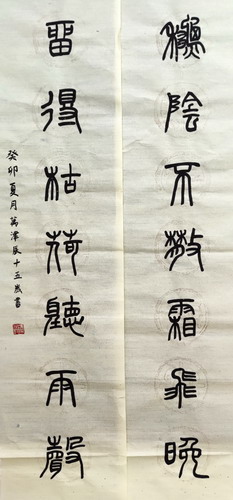 秋陰不散霜飛晚
留得枯荷聽雨聲
癸卯夏月萬澤辰十五歲書